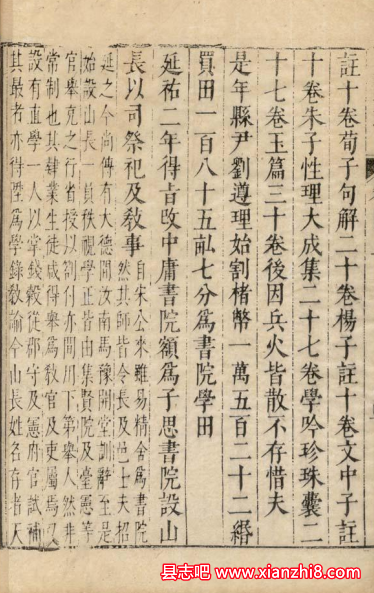 註十卷荀子句解二十卷楊子註十卷文中子註
十卷朱子性理大成集二十七卷學吟珍珠囊二
十七卷玉篇三十卷後因兵火皆散不存惜夫
是年縣尹劉遵理始割楮幣一萬五百二十二緡
買田一百八十五畝七分爲書院學田
延祐二年得旨改中庸書院額爲子思書院設山
長以司祭祀及敎事自宋公來雖易精舍爲書院
然其師皆令長及邑士夫招
延之今尚傳有大德間汝南馬豫開堂訓辭至是
始設山長一員秩視學正皆由集賢院及臺憲等
官舉克之行省授以劄付亦間用下第舉人然非
常制也其肄業生徒成得舉爲敎官及吏屬焉又
設有直學一人以掌錢穀從郡守及憲府官試補
其最者亦得陞爲學錄敎諭今山長姓名存者天
县志吧 www.xianzhi8.com